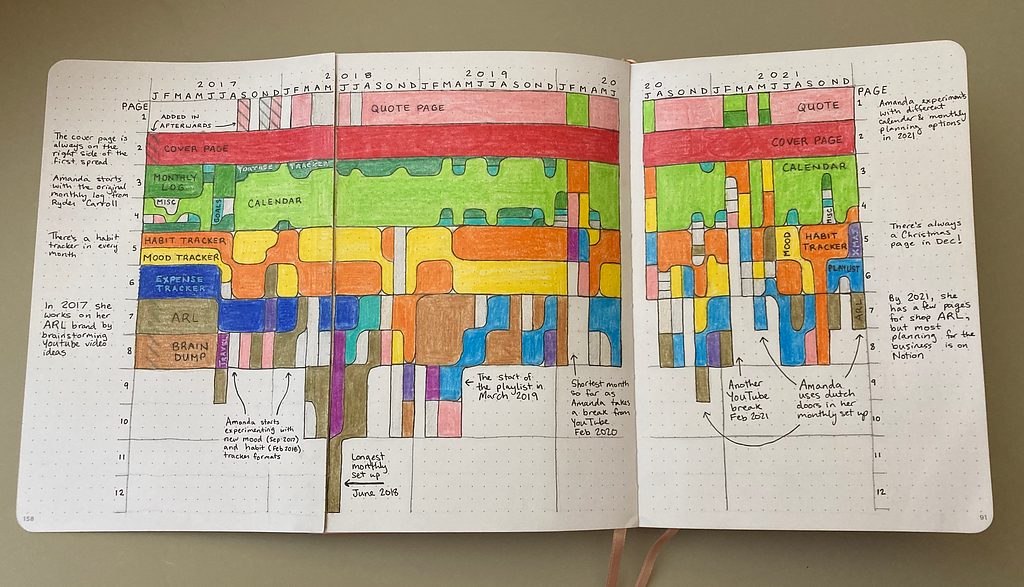 2017
2018
2019
20
20
2021
J F M A M J J A S O N D J F M A M J J A S O N D J F M A M J J A S O N D J F M A M J
J A S O N D J F M A M J J A S O N D
PAGE
1
2
3
4
5
6
7
8
9
10
11
12
The cover page is
always on the
right side of the
first spread
Amanda starts
with the original
monthly log from
Ryder Carroll
There's a habit
tracker in every
month
In 2017 she
works on her
ARL brand by
brainstorming
Youtube video
ideas
ADDED IN
AFTERWARDS
QUOTE PAGE
COVER PAGE
YOUTUBE TRACKER
MONTHLY
LOG
MISC
GOALS
CALENDAR
HABIT TRACKER
MOOD TRACKER
EXPENSE
TRACKER
ARL
BRAIN
DUMP
TRAVEL
Amanda starts
experimenting with
new mood (Sep 2017)
and habit (Feb 2018)
tracker formats
Longest
monthly
set up
June 2018
The start of
the playlist in
March 2019
Shortest month
so far as
Amanda takes
a break from
YouTube
Feb 2020
QUOTE
COVER PAGE
CALENDAR
MISC
MOOD
HABIT
TRACKER
XMAS
PLAYLIST
ARL
Another
YouTube
break
Feb 2021
Amanda
uses dutch
doors in her
monthly set up
PAGE
1
2
3
4
5
6
7
8
9
10
11
12
Amanda experiments
with different
calendar & monthly
planning options
in 2021
There's always
a Christmas
page in Dec!
By 2021, she
has a few pages
for shop ARL,
but most
planning for the
business is on
Notion
158
91